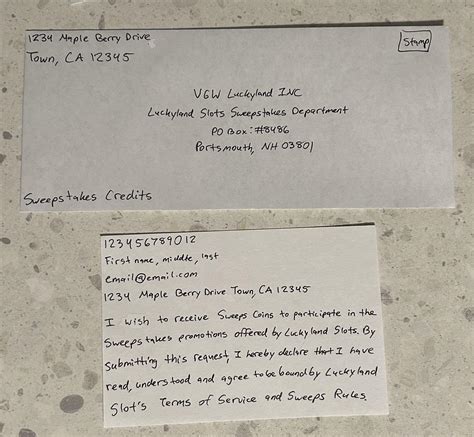 1234 Maple Berry Drive
Town, CA 12345
Stamp
VGW Luckyland INC
Luckyland Slots Sweepstakes Department
PO Box: #8486
Portsmouth, NH 03801
Sweepstakes Credits
123456789012
First name, middle, last
email@email.com
1234 Maple Berry Drive Town, CA 12345
I wish to receive Sweeps Coins to participate in the
Sweepstakes promotions offered by Luckyland Slots. By
submitting this request, I hereby declare that I have
read, understood and agree to be bound by Luckyland
Slot's Terms of Service and Sweeps Rules.